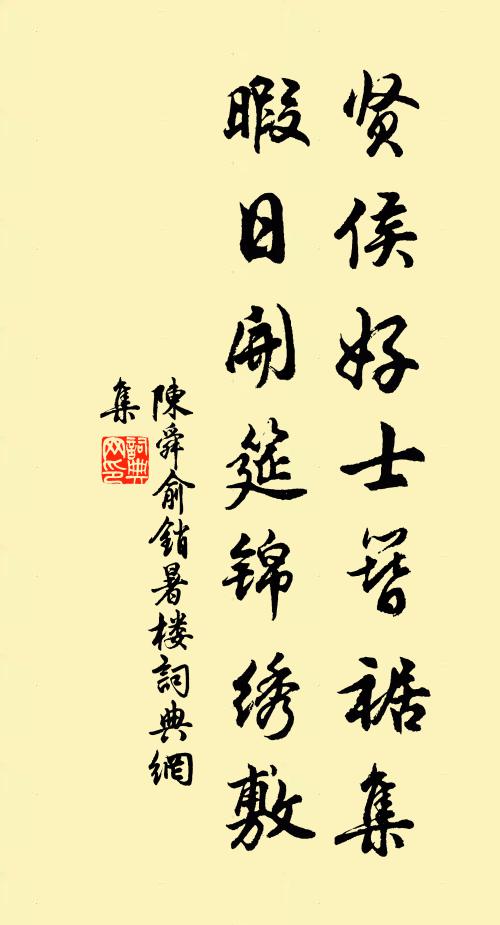 贤侯好士簪裾集
暇日開筵锦绣敷
陳舜俞銷暑楼詞典網
集
詞典网印